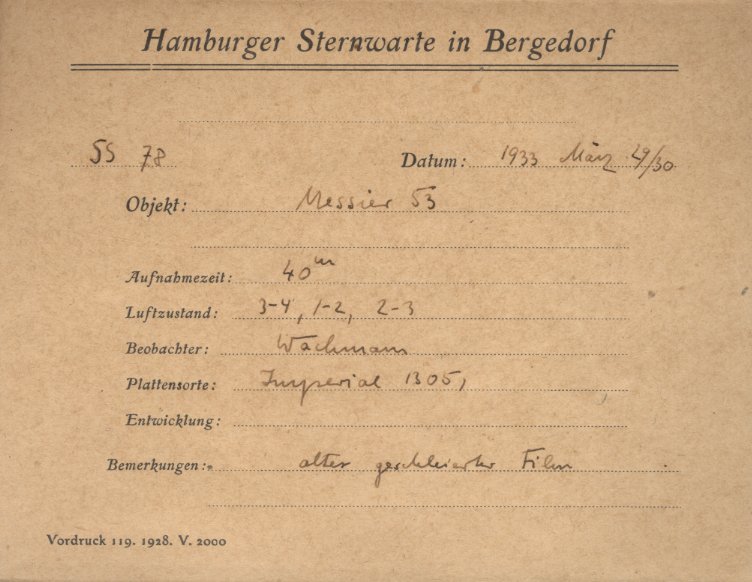 Hamburger Sternwarte in Bergedorf
SS 78 Datum: 1933 März 29/30
Objekt: Messier 53
Aufnahmezeit: 40m
Luftzustand: 3-4, 1-2, 2-3
Beobachter: Wachmann
Plattensorte: Imperial 1305,
Entwicklung:
Bemerkungen: alter geschleierter Film
Vordruck 119. 1928. V. 2000